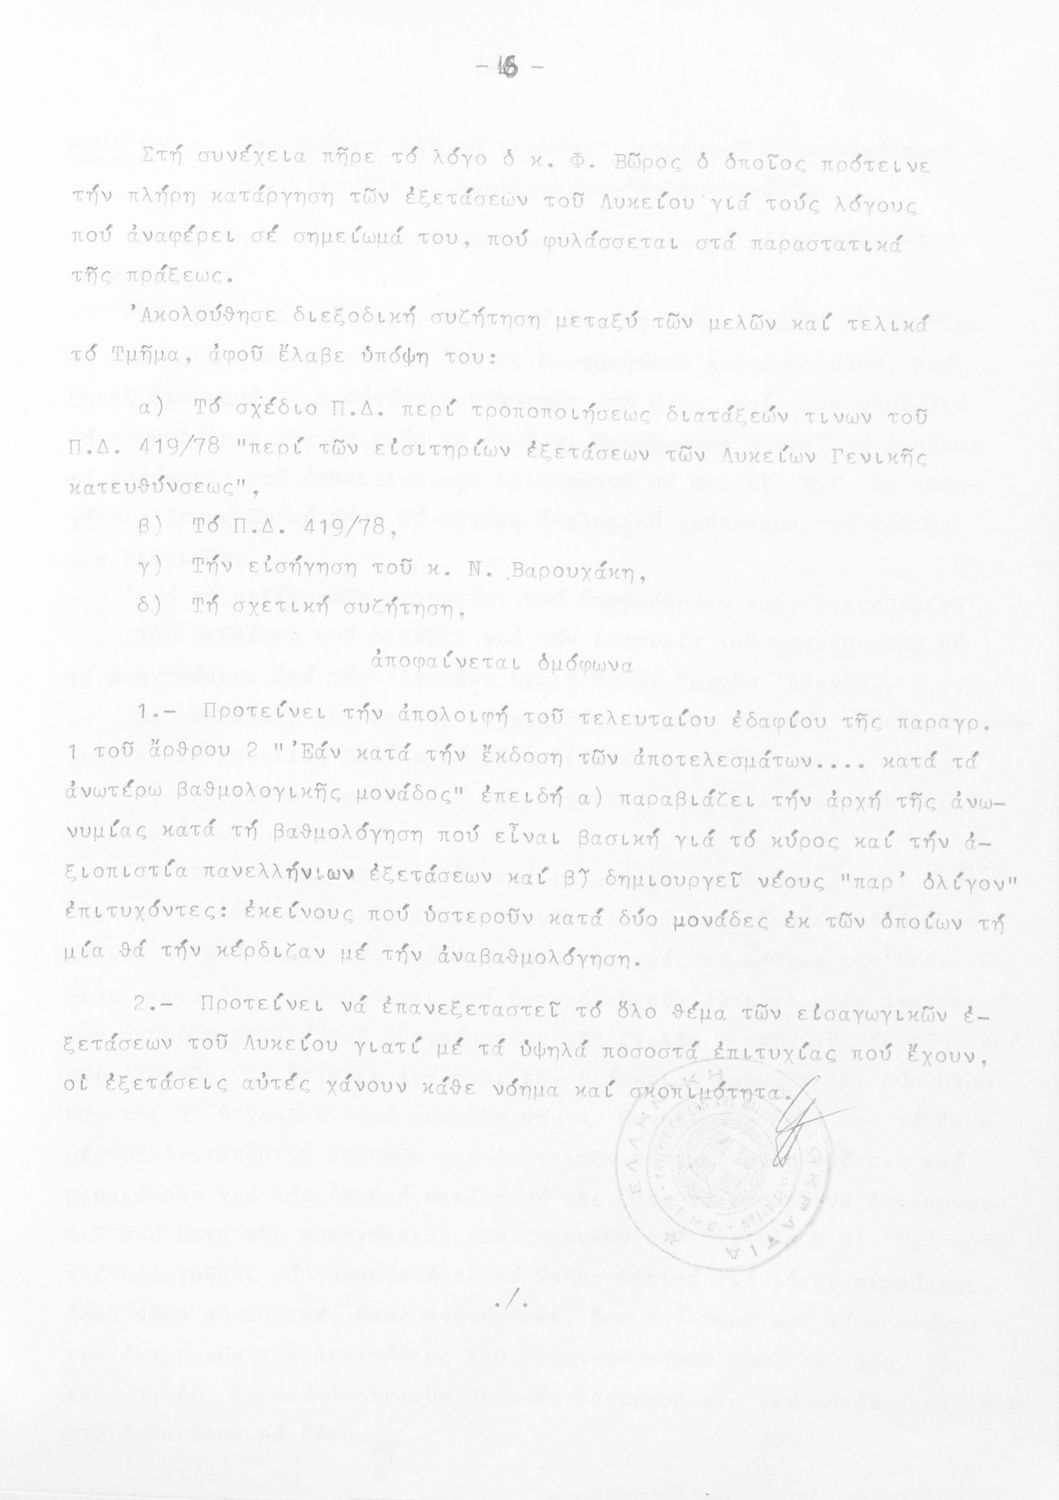 - 6 -
Στή συνέχεια πῆρε τό λόγο ὁ κ. Φ. Βῶρος ὁ ὁποῖος πρότεινε
τήν πλήρη κατάργηση τῶν ἐξετάσεων τοῦ Λυκείου γιά τούς λόγους
πού ἀναφέρει σέ σημείωμά του, πού φυλάσσεται στά παραστατικά
τῆς πράξεως.
'Ακολούθησε διεξοδική συζήτηση μεταξύ τῶν μελῶν καί τελικά
τό Τμῆμα, ἀφοῦ ἔλαβε ὑπόψη του:
α) Τό σχέδιο Π.Δ. περί τροποποιήσεως διατάξεών τινων τοῦ
Π.Δ. 419/78 "περί τῶν εἰσιτηρίων ἐξετάσεων τῶν Λυκείων Γενικῆς
κατευθύνσεως",
β) Τό Π.Δ. 419/78,
γ) Τήν εἰσήγηση τοῦ κ. Ν. Βαρουχάκη,
δ) Τή σχετική συζήτηση,
ἀποφαίνεται ὁμόφωνα
1.- Προτείνει τήν ἀπολοιφή τοῦ τελευταίου ἐδαφίου τῆς παραγρ.
1 τοῦ ἄρθρου 2 "'Εάν κατά τήν ἔκδοση τῶν ἀποτελεσμάτων.... κατά τά
ἀνωτέρω βαθμολογικῆς μονάδος" ἐπειδή α) παραβιάζει τήν ἀρχή τῆς ἀνω-
νυμίας κατά τή βαθμολόγηση πού εἶναι βασική γιά τό κύρος καί τήν ἀ-
ξιοπιστία πανελλήνιων ἐξετάσεων καί β) δημιουργεῖ νέους "παρ' ὀλίγον"
ἐπιτυχόντες: ἐκείνους πού ὑστεροῦν κατά δύο μονάδες ἐκ τῶν ὁποίων τή
μία θά τήν κέρδιζαν μέ τήν ἀναβαθμολόγηση.
2.- Προτείνει νά ἐπανεξεταστεῖ τό ὅλο θέμα τῶν εἰσαγωγικῶν ἐ-
ξετάσεων τοῦ Λυκείου γιατί μέ τά ὑψηλά ποσοστά ἐπιτυχίας πού ἔχουν,
οἱ ἐξετάσεις αὐτές χάνουν κάθε νόημα καί σκοπιμότητα.
./.